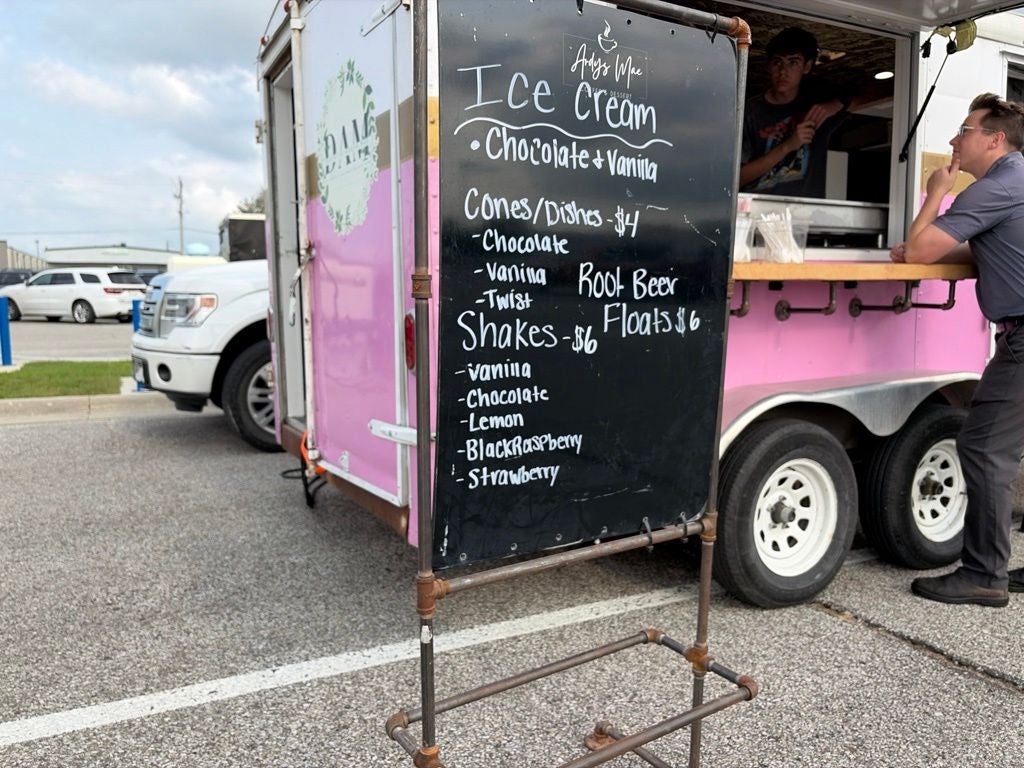 Andy's Mae
DESSERT
Ice Cream
• Chocolate & Vanilla
Cones/Dishes - $4
- Chocolate
- Vanilla
- Twist
Root Beer
Floats $6
Shakes - $6
- Vanilla
- Chocolate
- Lemon
- BlackRaspberry
- Strawberry